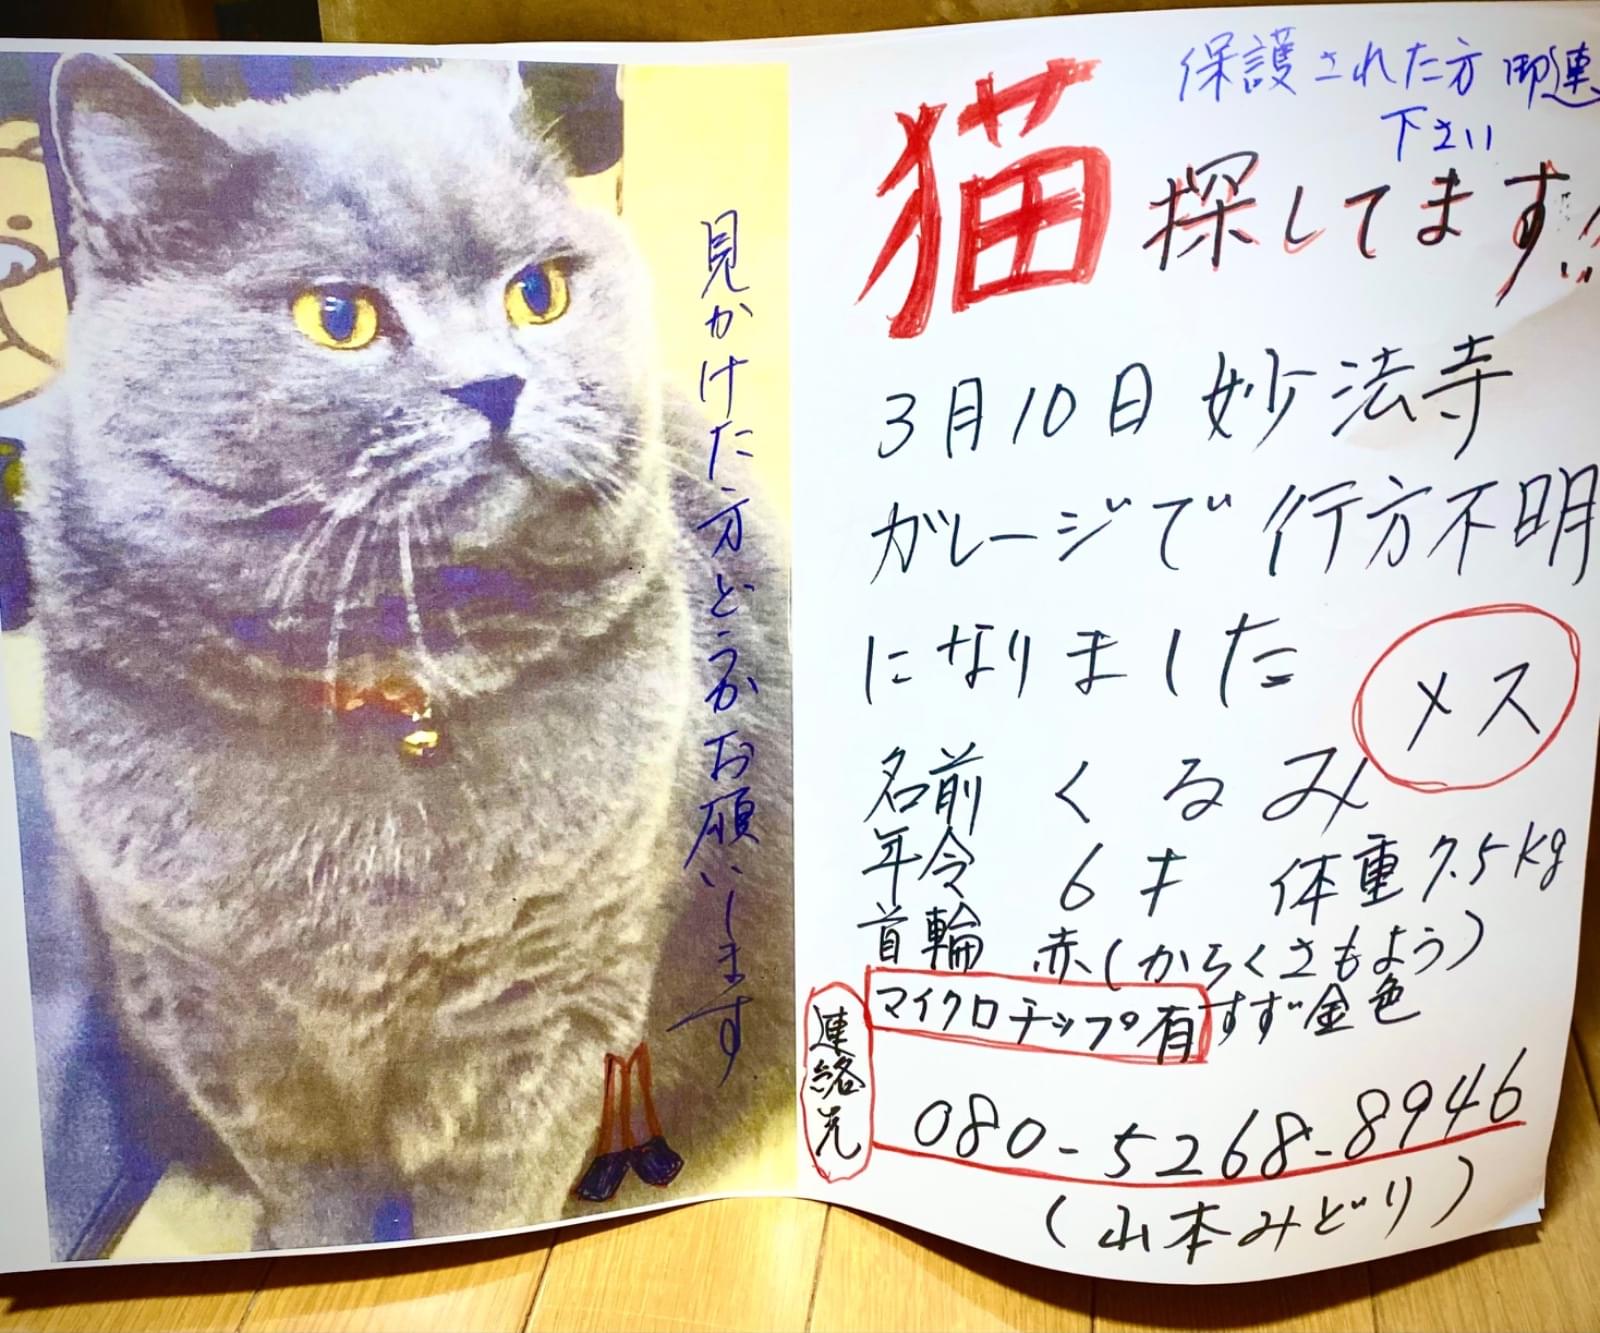 保護された方 即連
下さい
猫探してます!!
3月10日 妙法寺
ガレージで行方不明
になりました
メス
名前 くるみ
年令 6才 体重7.5kg
首輪 赤(からくさもよう)
マイクロチップ有 すず金色
連絡先
080-5268-8946
(山本みどり)
見かけた方どうかお願いします